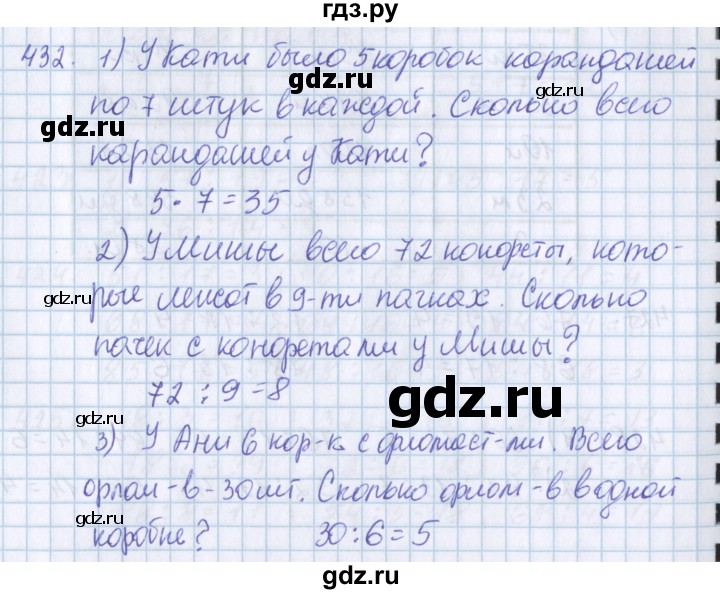 гдз.ру
432. 1) У Кати было 5 коробок карандашей
gdz.ru
gdz.ru
по 7 штук в каждой. Сколько всего
gdz.ru
карандашей у Кати?
5 · 7 = 35
2) У Миши всего 72 конфеты, кото-
gdz.ru
рые лежат в 9-ти пачках. Сколько
пачек с конфетами у Мишы?
72 : 9 = 8
gdz.ru
gdz.ru
3) У Ани 6 кор-к с фломаст-ми. Всего
флом-в - 30 шт. Сколько флом-в в одной
gdz.ru
коробке? 30 : 6 = 5
gdz.ru